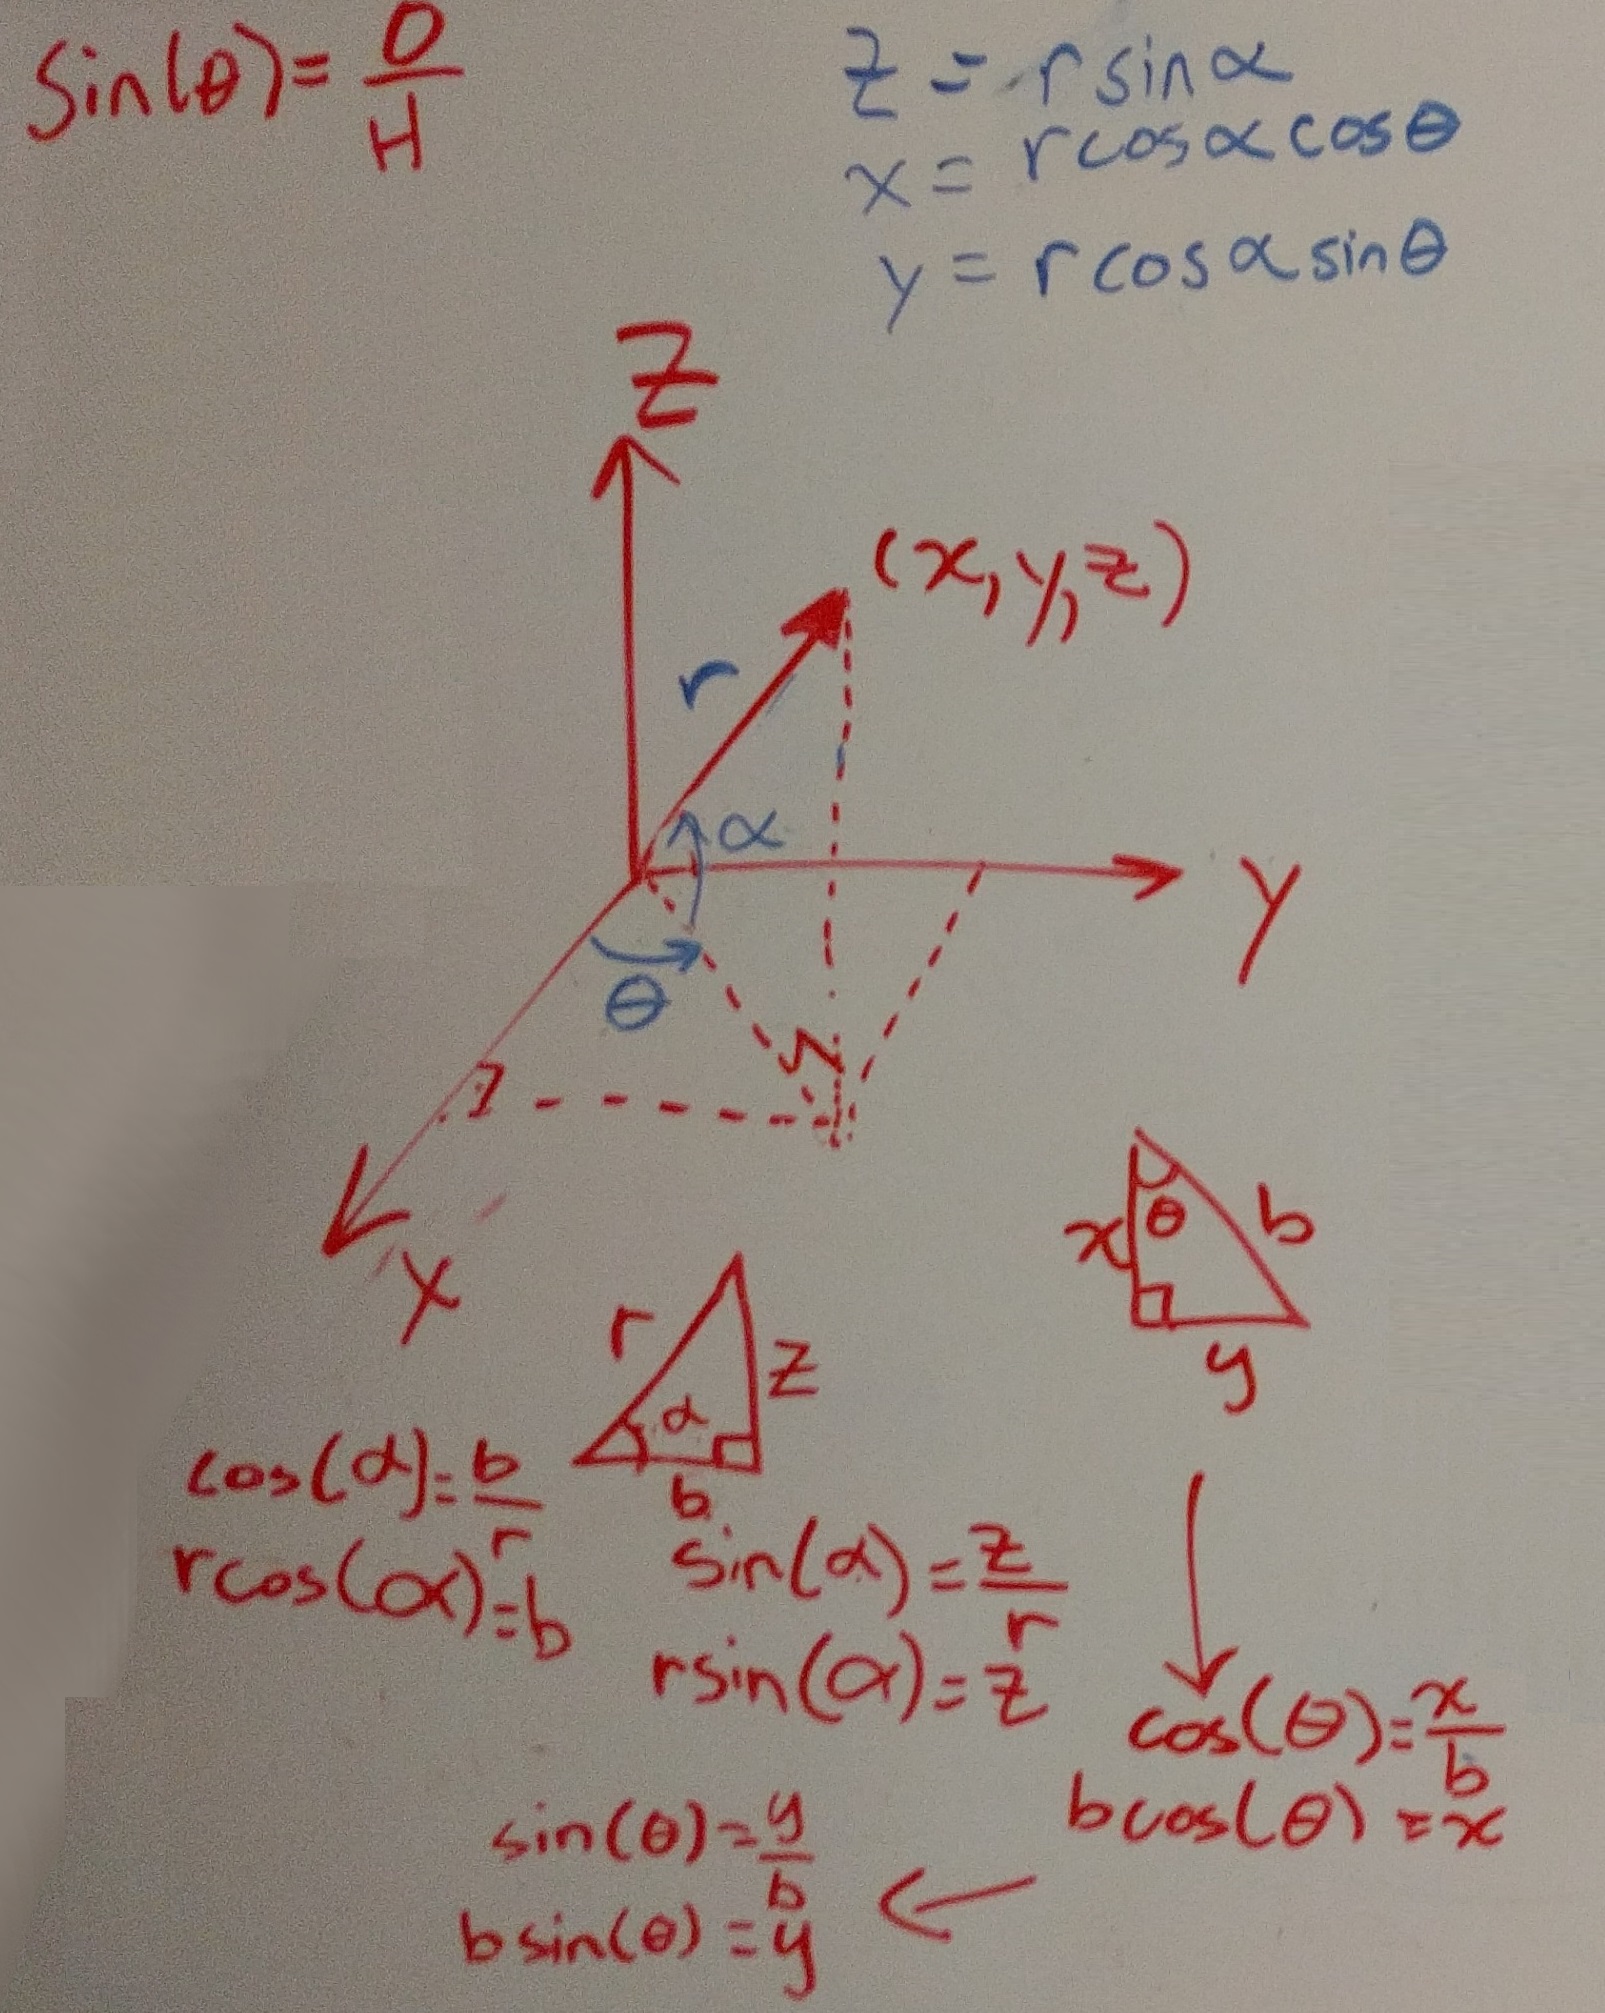 Sin(θ)= O/H
z = r sin α
x = r cos α cos θ
y = r cos α sin θ
Z
(x, y, z)
r
α
Y
θ
X
x θ b
y
r z
α
b
cos(α)= b/r
rcos(α)=b
sin(α)= z/r
rsin(α)=z
cos(θ)= x/b
bcos(θ)=x
sin(θ)= y/b
bsin(θ)=y